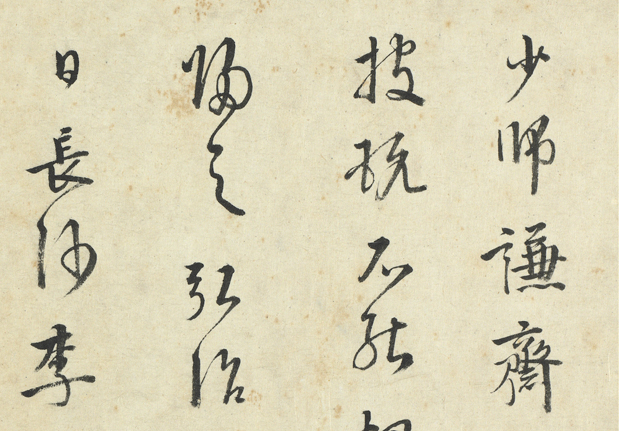 少師謙齋
披玩不能
歸之弘治
日長沙李